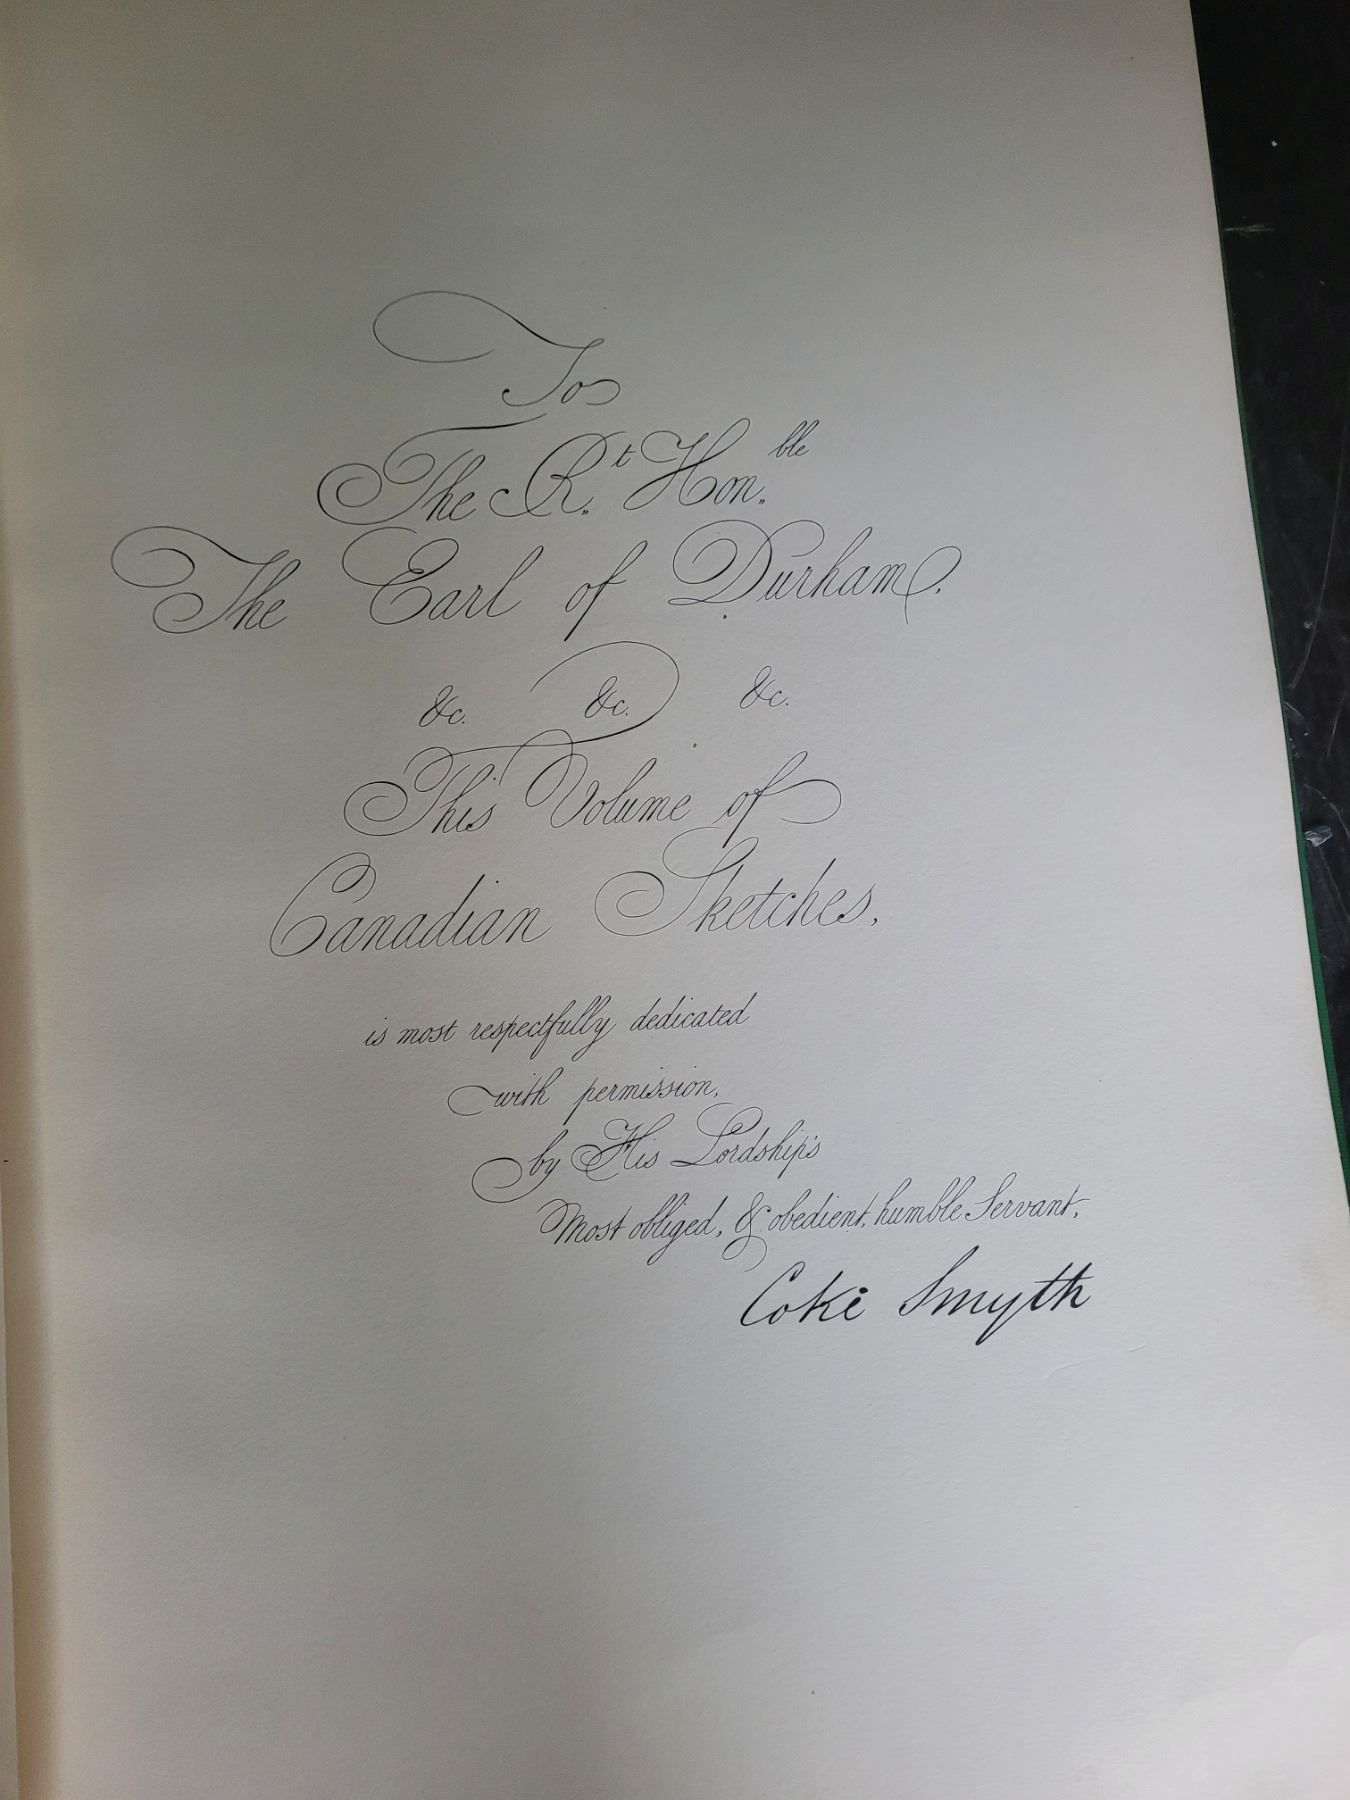 To
The Rt. Honble.
The Earl of Durham.
&c. &c. &c.
This Volume of
Canadian Sketches,
is most respectfully dedicated
with permission,
by His Lordship's
Most obliged, & obedient, humble Servant,
Coke Smyth